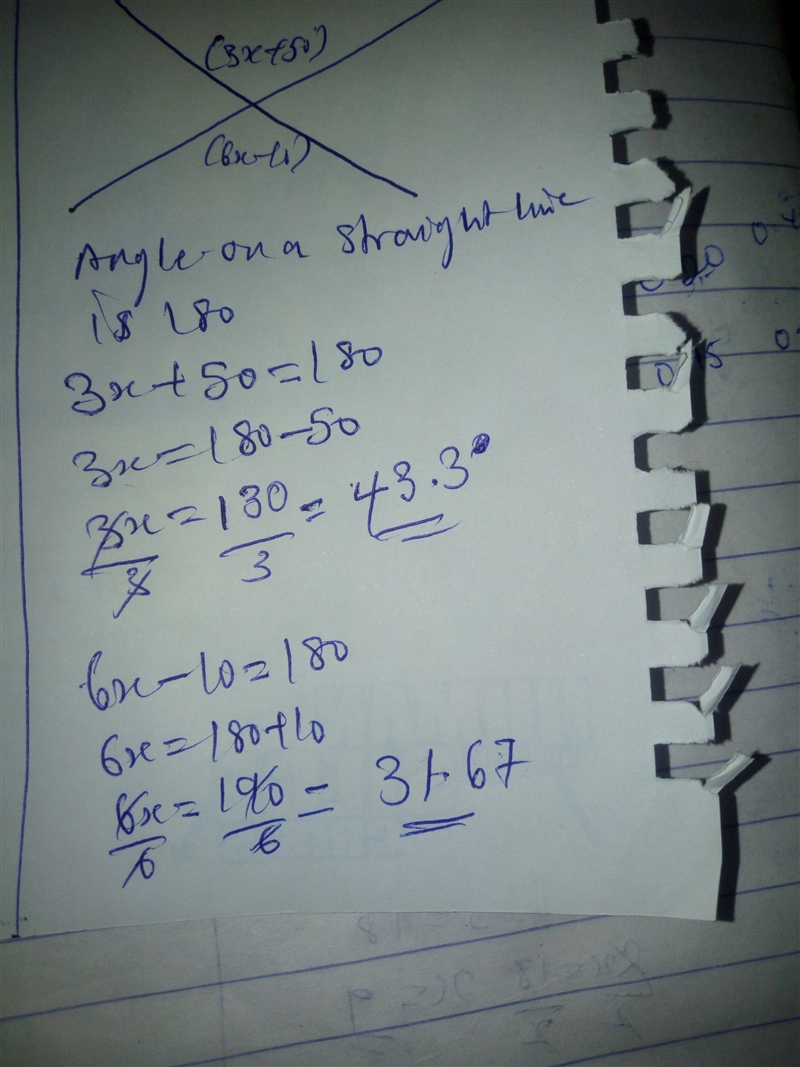 (3x+50)
(6x-10)
Angle on a straight line
is 180
3x+50=180
3x=180-50
3x/3=130/3=43.3°
6x-10=180
6x=180+10
6x/6=190/6=31.67
0
20
0
0
15
0